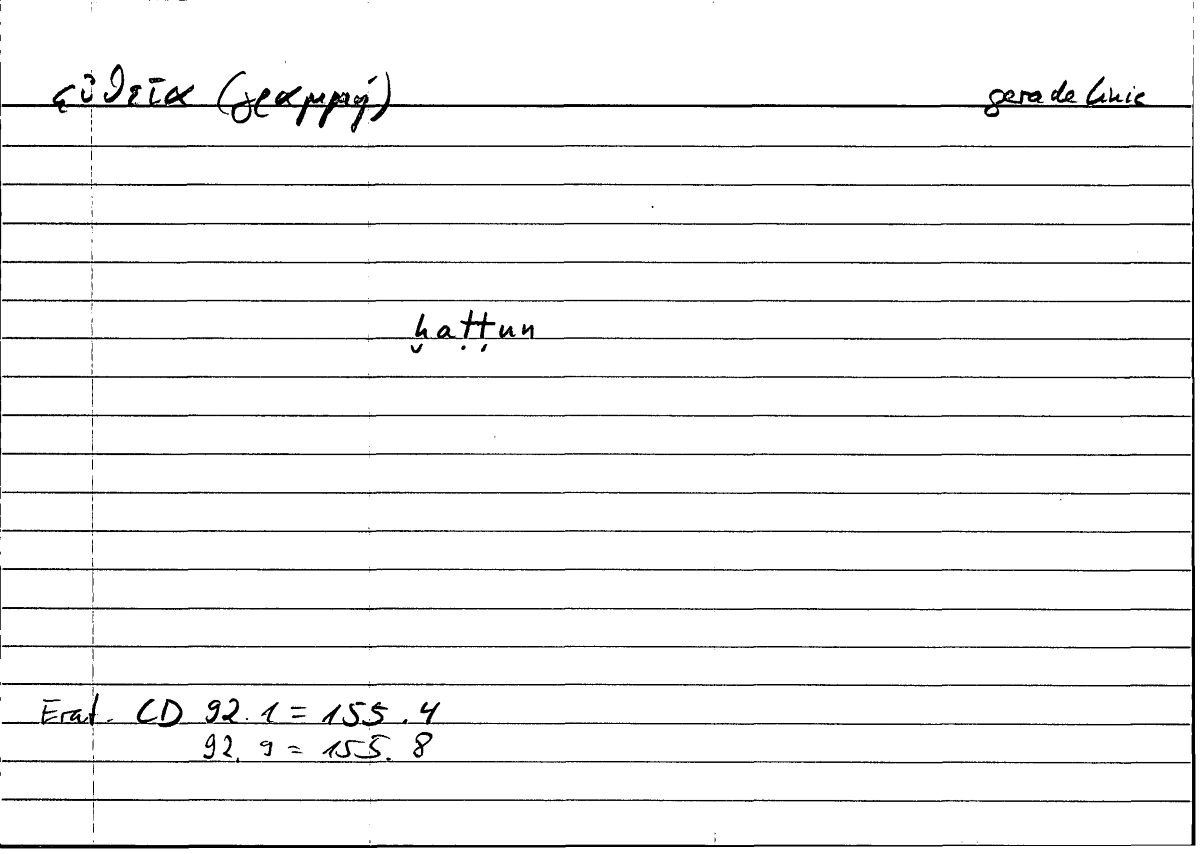 εὐθεῖα (γραμμή) gerade Linie
ḫaṭṭun
Erat. CD 92.1 = 155.4
92.9 = 155.8